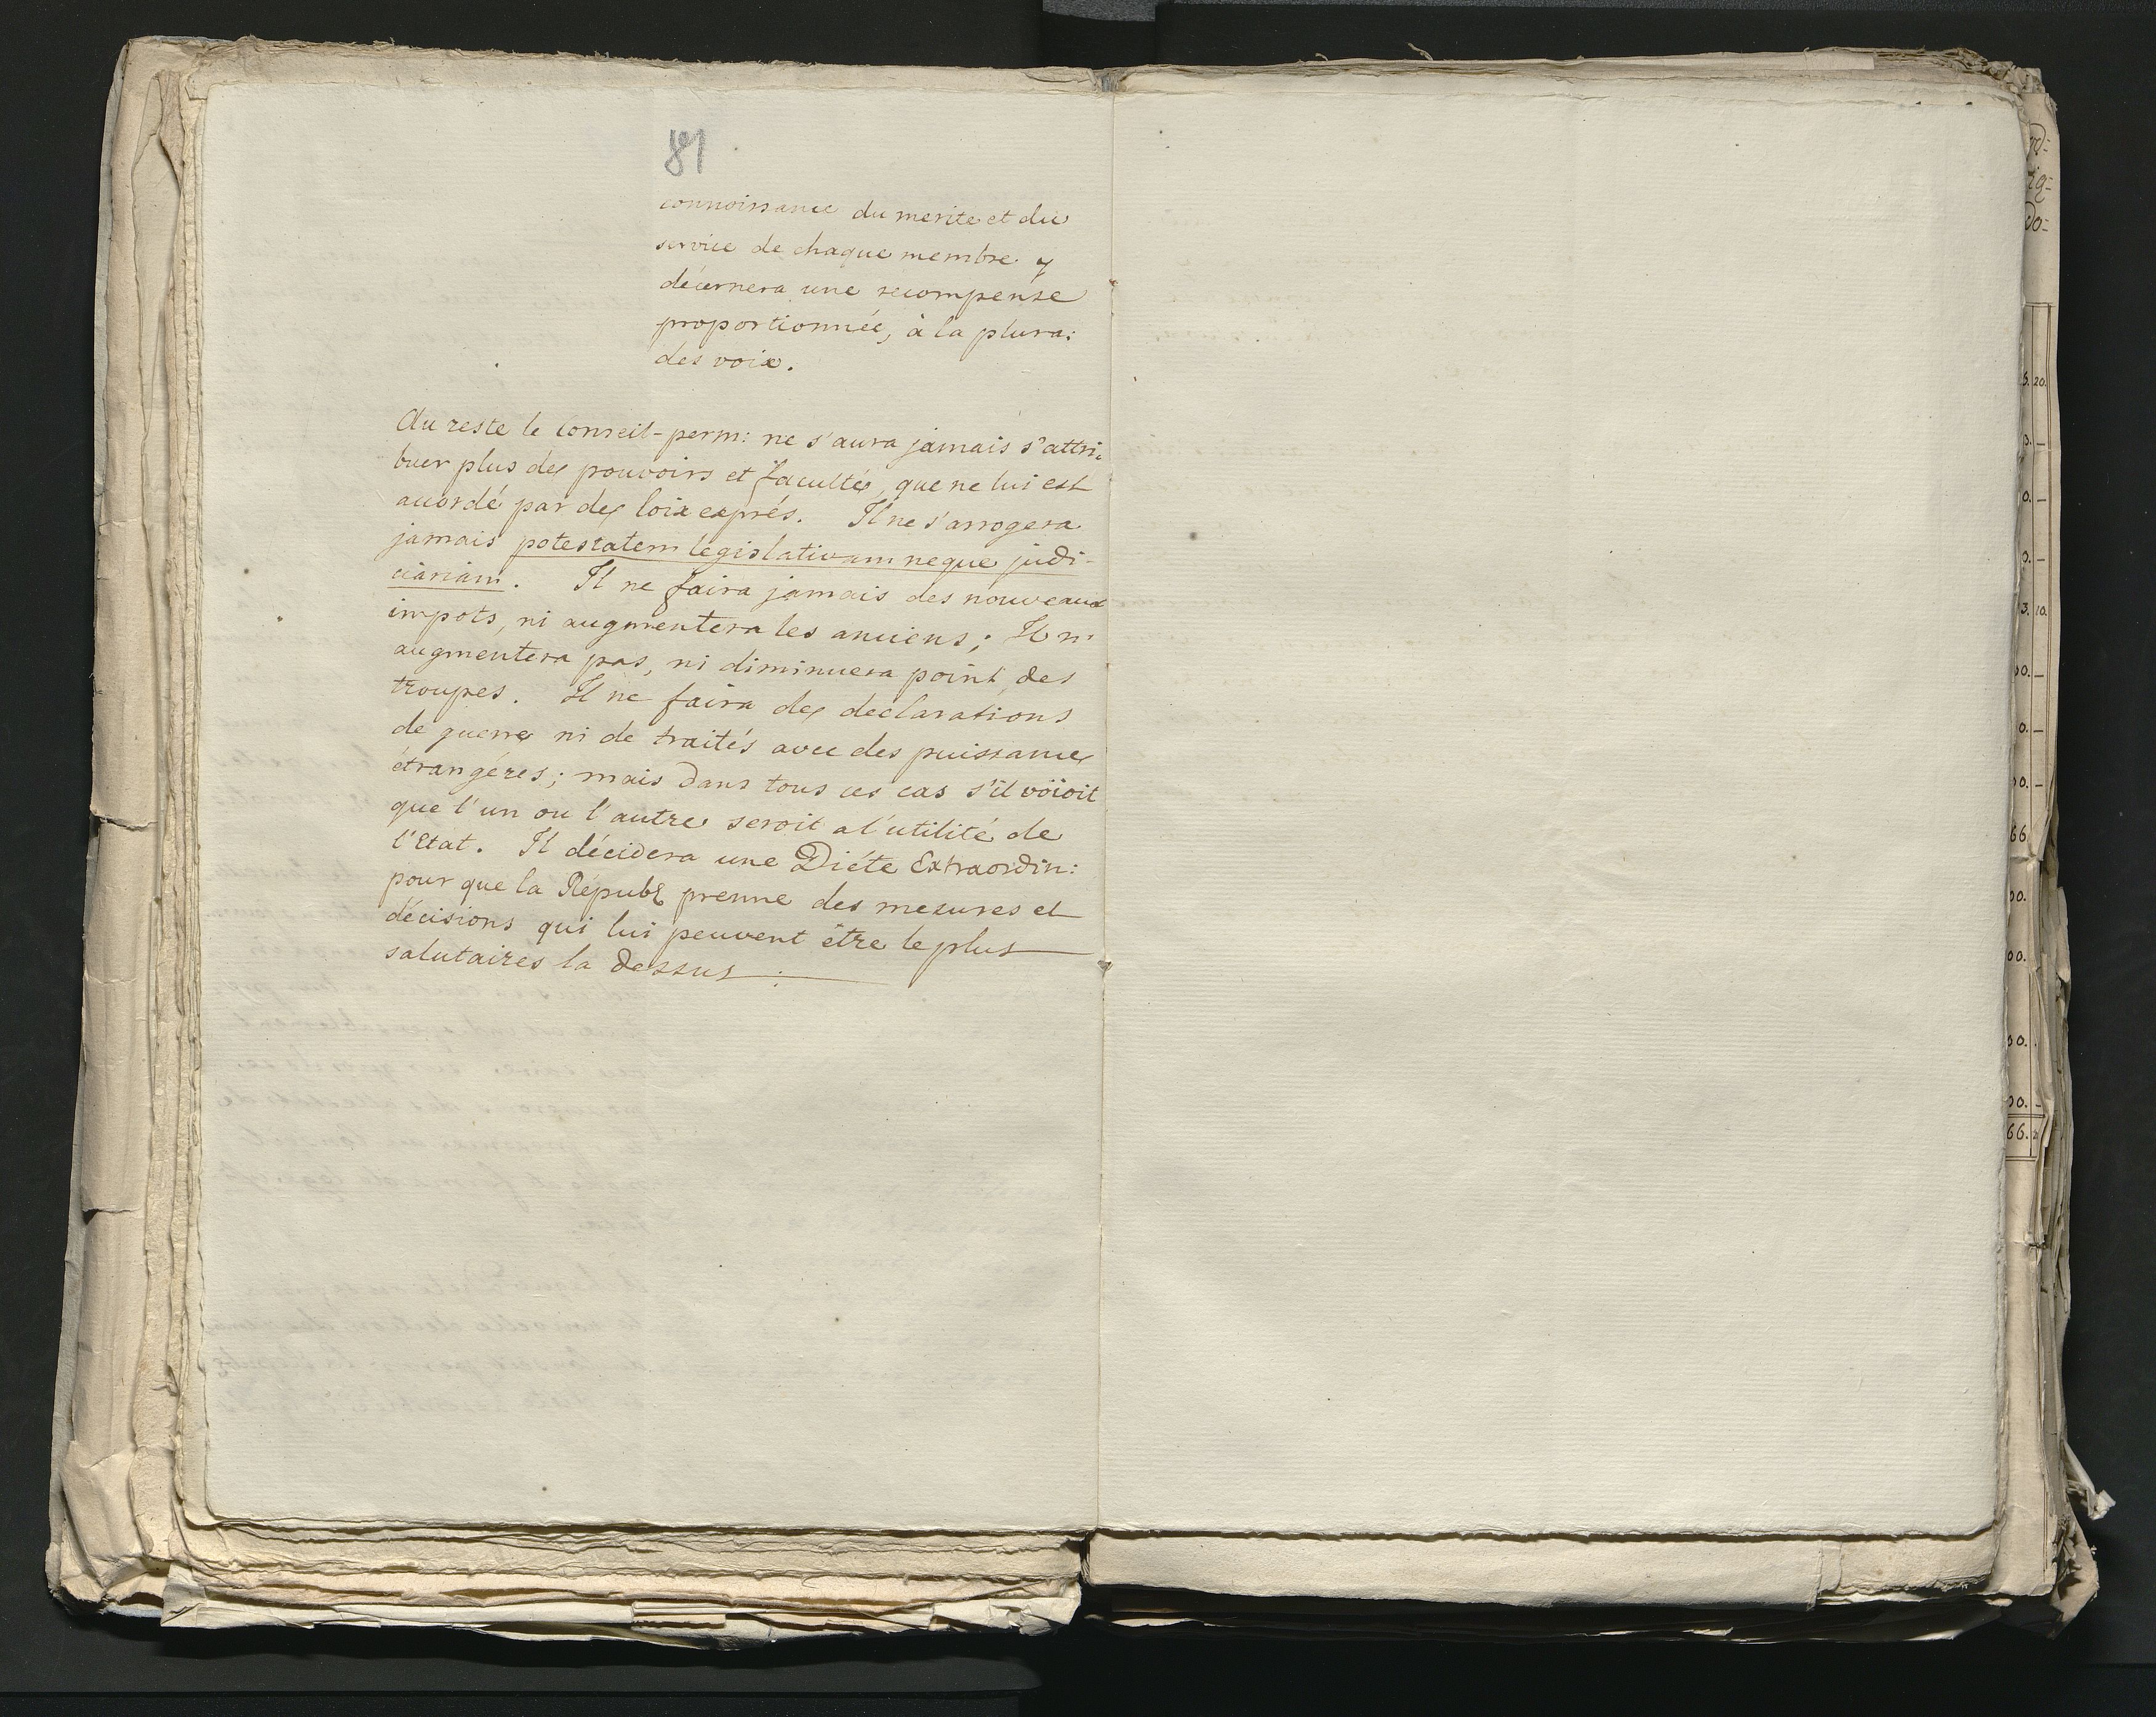 81
connoissance du merite et du
service de chaque membre y
décernera une recompense
proportionnée, à la plura:
des voix.
Au reste le Conseil-perm: ne s'aura jamais s'attri-
buer plus des pouvoirs et facultés, que ne lui est
accordé par des loix exprés. Il ne s'arrogera
jamais potestatem legislativam neque judi-
ciariam. Il ne faira jamais des nouveaux
impots, ni augmentera les anciens; Il n'
augmentera pas, ni diminuera point des
troupes. Il ne faira des declarations
de guerre ni de traités avec des puissances
étrangéres; mais dans tous ces cas s'il vöioit
que l'un ou l'autre seroit a l'utilité de
l'Etat. Il décidera une Diéte Extraordin:
pour que la Républ prenne des mesures et
décisions qui lui peuvent être le plus
salutaires la dessus.